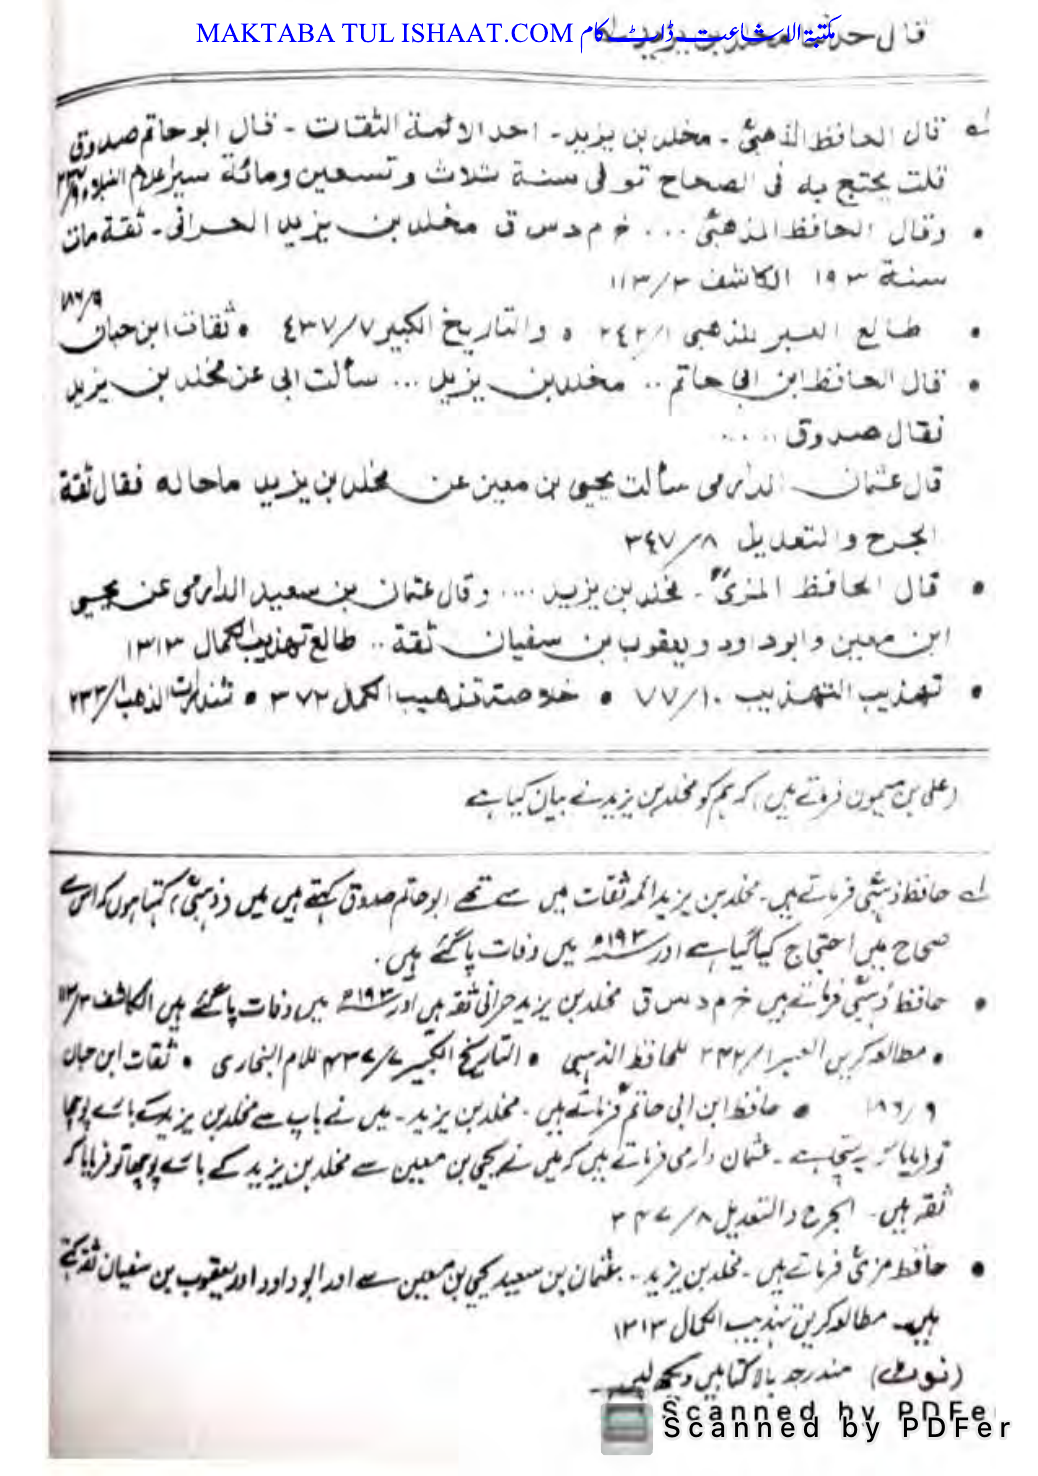 MAKTABA TUL ISHAAT.COM مکتبۃ الاشاعت ڈاٹ کام
قال حدثنا مخلد بن يزيد
قال الحافظ الذهبیؒ - مخلد بن يزيد - احد الائمة الثقات - قال ابو حاتم صدوق
قلت يحتج به فى الصحاح توفى سنة ثلاث وتسعين ومائة سير اعلام النبلاء
• وقال الحافظ الذهبیؒ ... خ م د س ق مخلد بن يزيد الحرانى - ثقة مات
سنة ١٩٣ الكاشف ١١٣/٣
• طالع العبر للذهبى ٢٤٢/١ • والتاريخ الكبير ٤٣٧/٧ • ثقات ابن حبان
١٨٦/٩
• قال الحافظ ابن ابی حاتم .. مخلد بن يزيد ... سألت ابى عن مخلد بن يزيد
فقال صدوق ....
قال عثمان الدارمى سألت يحيى بن معين عن مخلد بن يزيد ماحاله فقال ثقة
الجرح والتعديل ٣٤٧/٨
• قال الحافظ المزیؒ - مخلد بن يزيد .... وقال عثمان بن سعيد الدارمى عن يحيى
ابن معين وابو داود ويعقوب بن سفيان ثقة .. طالع تهذيب الكمال ١٣١٣
• تهذيب التهذيب ٧٧/١٠ • خلاصة تذهيب الكمال ٣٧٢ • شذرات الذهب
(علی بن میمون فرماتے ہیں) کہ ہم کو مخلد بن یزید نے بیان کیا ہے
حافظ ذہبیؒ فرماتے ہیں - مخلد بن یزید ائمہ ثقات میں سے تھے ابو حاتم صدوق کہتے ہیں میں (ذہبیؒ) کہتا ہوں کہ اس سے
صحاح میں احتجاج کیا گیا ہے اور سنہ ۱۹۳ھ میں وفات پا گئے ہیں .
• حافظ ذہبیؒ فرماتے ہیں خ م د س ق مخلد بن یزید حرانی ثقہ ہیں اور ۱۹۳ھ میں وفات پا گئے ہیں الکاشف ۱۱۳/۳
• مطالعہ کریں العبر ۲۴۲/۱ للحافظ الذہبی • التاریخ الکبیر ۴۳۷/۷ للامام البخاری • ثقات ابن حبان
۱۸۶/۹ • حافظ ابن ابی حاتمؒ فرماتے ہیں - مخلد بن یزید - میں نے باپ سے مخلد بن یزید کے بارے پوچھا
تو فرمایا کہ یہ سچا ہے - عثمان دارمی فرماتے ہیں کہ میں نے یحیٰی بن معین سے مخلد بن یزید کے بارے پوچھا تو فرمایا کہ
ثقہ ہیں - الجرح والتعدیل ۳۴۷/۸
• حافظ مزیؒ فرماتے ہیں - مخلد بن یزید - عثمان بن سعید یحیٰی بن معین سے اور ابو داود اور یعقوب بن سفیان ثقہ کہتے
ہیں مطالعہ کریں تہذیب الکمال ۱۳۱۳
(نوٹ) مندرجہ بالا کتابیں دیکھ لیں
Scanned by PDFer
Scanned by PDFer